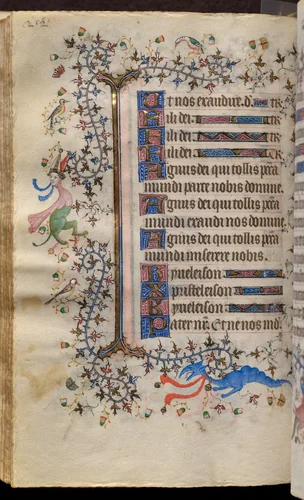 Et nos exaudire d. TR
Fili dei TR
Fili dei TR
Fili dei TR
Agnus dei qui tollis pcca
mundi parce nobis domine.
Agnus dei qui tollis pcca
mundi exaudi nos domine.
Agnus dei qui tollis pcca
mundi miserere nobis.
Kyrieleison
Xpisteleison
Kyrieleison
Pater nr. Et ne nos ind